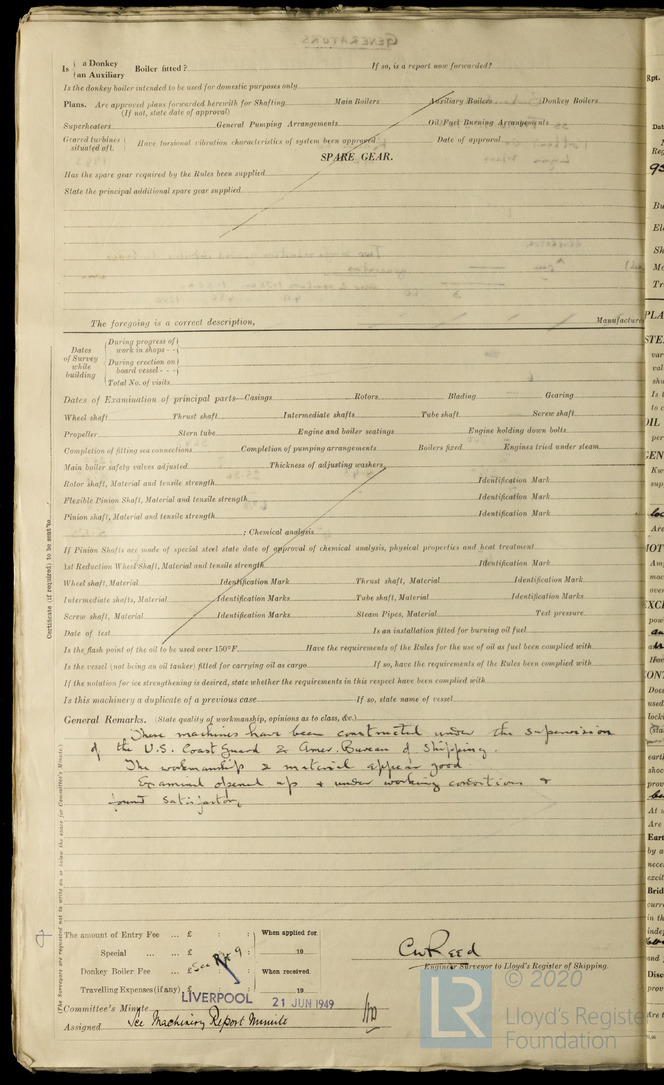 GENERATORS
Is { a Donkey / an Auxiliary } Boiler fitted? If so, is a report now forwarded?
Is the donkey boiler intended to be used for domestic purposes only
Plans. Are approved plans forwarded herewith for Shafting Main Boilers Auxiliary Boilers Donkey Boilers
(If not, state date of approval)
Superheaters General Pumping Arrangements Oil Fuel Burning Arrangements
Geared turbines situated aft. } Have torsional vibration characteristics of system been approved Date of approval
SPARE GEAR.
Has the spare gear required by the Rules been supplied
State the principal additional spare gear supplied
The foregoing is a correct description, Manufacture
Dates of Survey while building
During progress of work in shops - -
During erection on board vessel - - -
Total No. of visits
Dates of Examination of principal parts—Casings Rotors Blading Gearing
Wheel shaft Thrust shaft Intermediate shafts Tube shaft Screw shaft
Propeller Stern tube Engine and boiler seatings Engine holding down bolts
Completion of fitting sea connections Completion of pumping arrangements Boilers fixed Engines tried under steam
Main boiler safety valves adjusted Thickness of adjusting washers
Rotor shaft, Material and tensile strength Identification Mark
Flexible Pinion Shaft, Material and tensile strength Identification Mark
Pinion shaft, Material and tensile strength Identification Mark
; Chemical analysis
If Pinion Shafts are made of special steel state date of approval of chemical analysis, physical properties and heat treatment
1st Reduction Wheel Shaft, Material and tensile strength Identification Mark
Wheel shaft, Material Identification Mark Thrust shaft, Material Identification Mark
Intermediate shafts, Material Identification Marks Tube shaft, Material Identification Mark
Screw shaft, Material Identification Marks Steam Pipes, Material Test pressure
Date of test Is an installation fitted for burning oil fuel
Is the flash point of the oil to be used over 150°F. Have the requirements of the Rules for the use of oil as fuel been complied with
Is the vessel (not being an oil tanker) fitted for carrying oil as cargo If so, have the requirements of the Rules been complied with
If the notation for ice strengthening is desired, state whether the requirements in this respect have been complied with
Is this machinery a duplicate of a previous case If so, state name of vessel
General Remarks. (State quality of workmanship, opinions as to class, &c.)
These machines have been constructed under the supervision
of the U.S. Coast Guard & Amer. Bureau of Shipping.
The workmanship & material appear good
Examined opened up & under working conditions &
found satisfactory
Certificate (if required) to be sent to
(The Surveyors are requested not to write on or below the space for Committee's Minute.)
The amount of Entry Fee ... £ : : When applied for
Special ... ... £ : : 19
Donkey Boiler Fee ... £ See Rpt 9 : When received
Travelling Expenses (if any) £ 19
CWReed
Engineer Surveyor to Lloyd's Register of Shipping.
LIVERPOOL 21 JUN 1949
Committee's Minute
Assigned See Machinery Report Minute
LR
© 2020
Lloyd's Register
Foundation